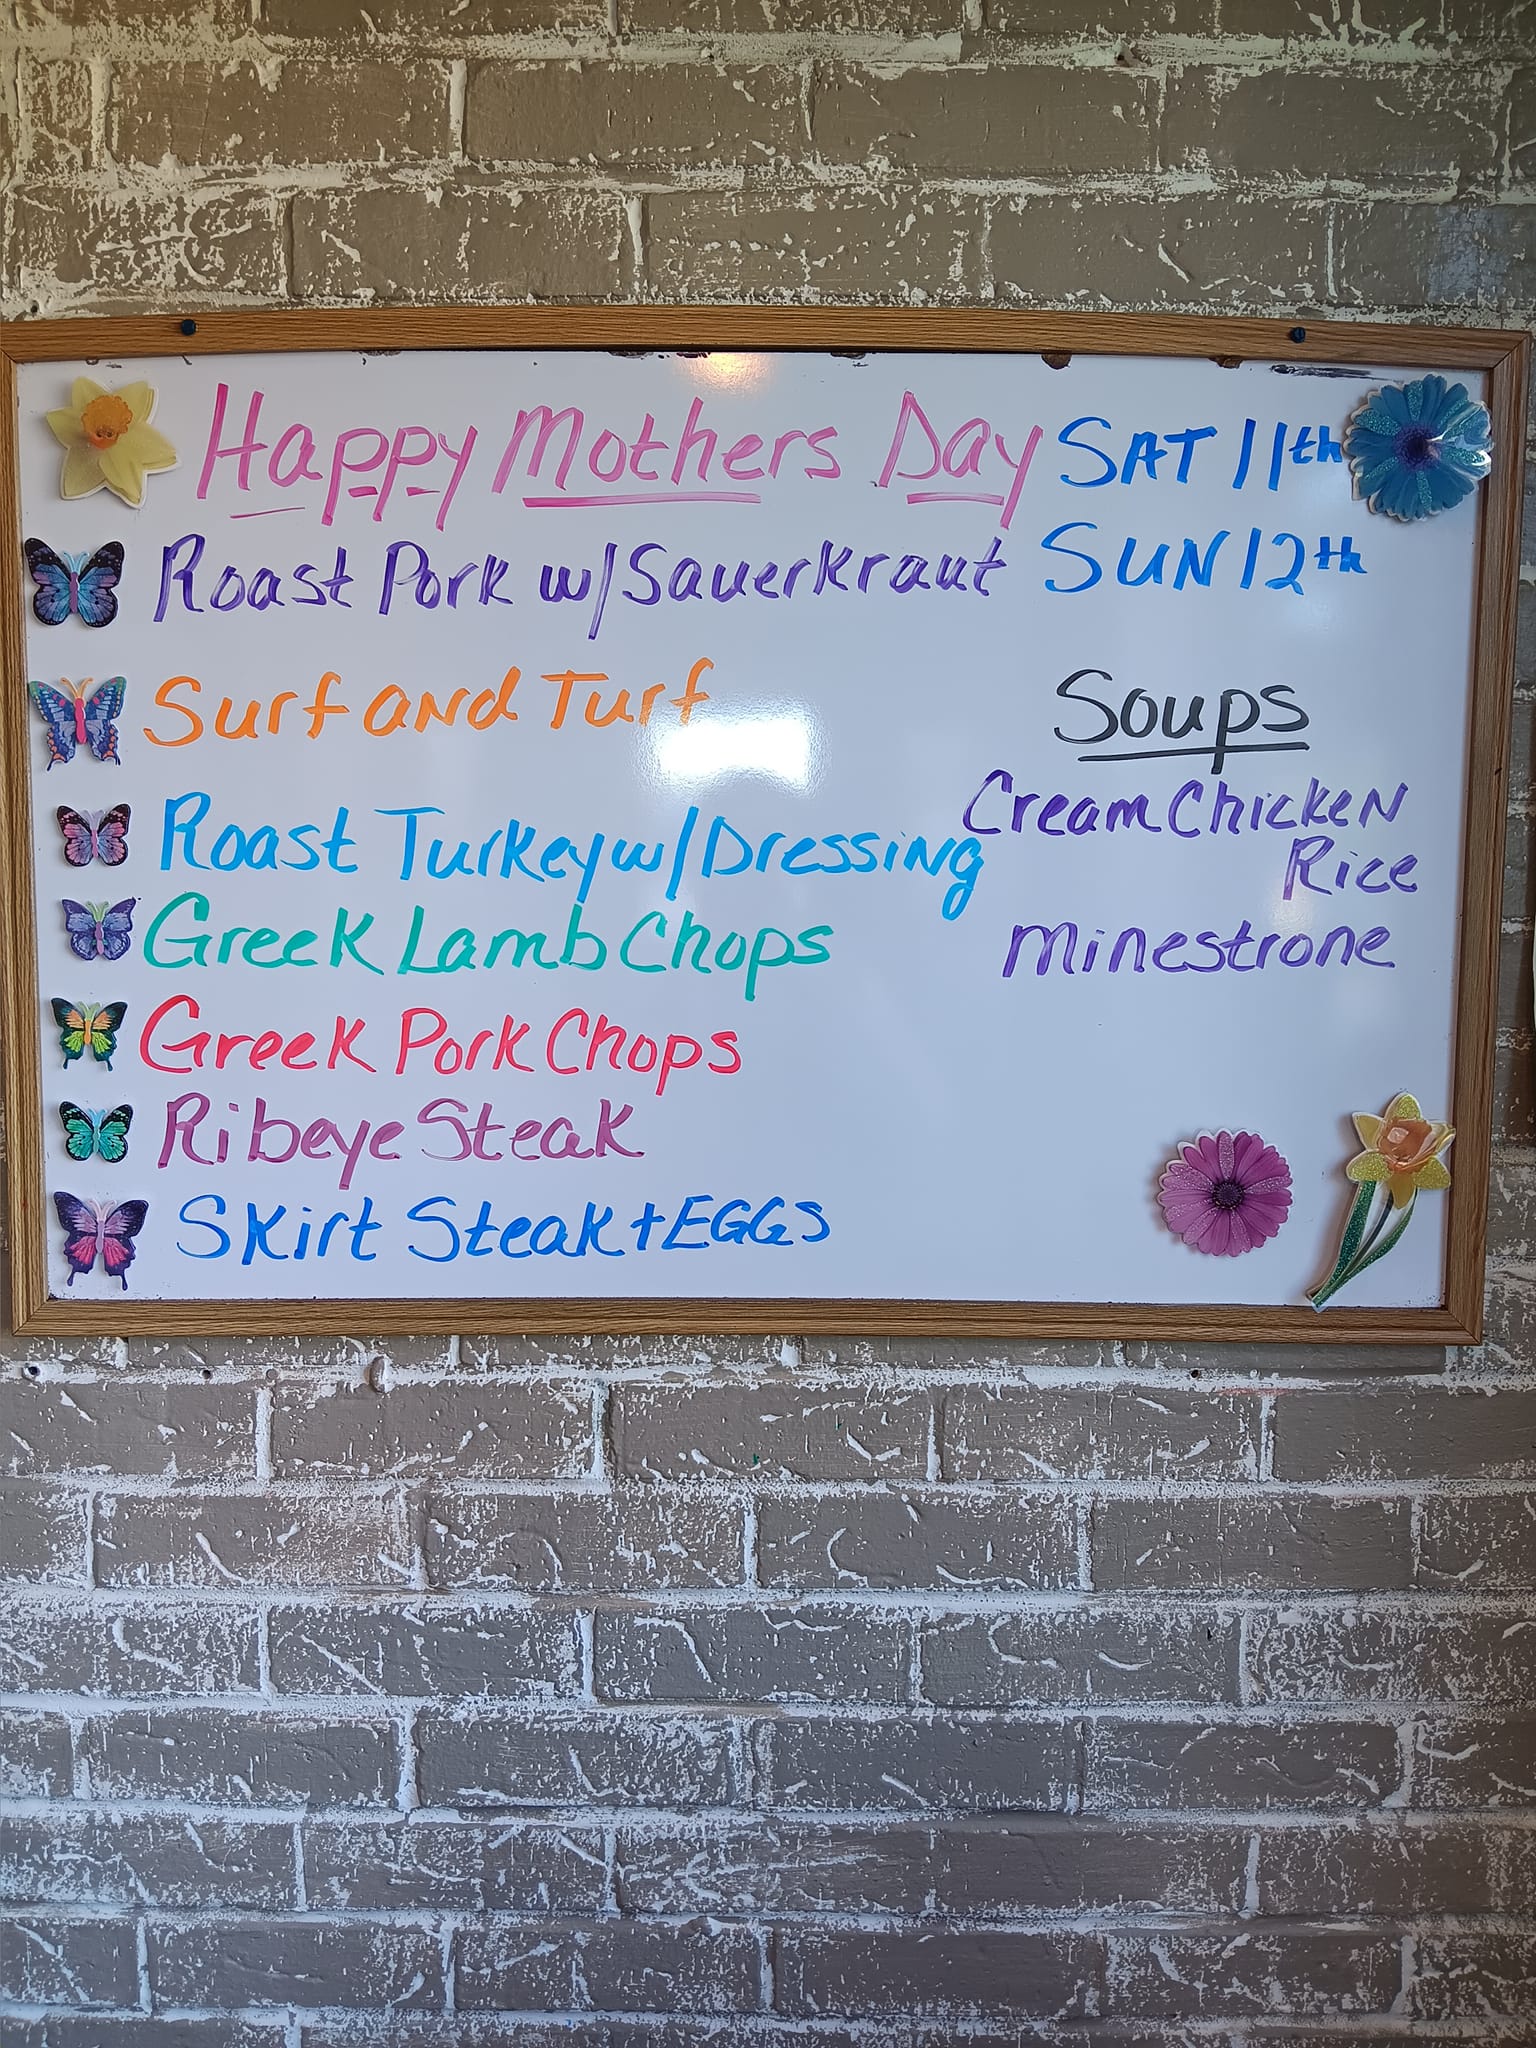 Happy Mothers Day SAT 11th
SUN 12th
Roast Pork w/Sauerkraut
Surf and Turf
Roast Turkey w/Dressing
Greek Lamb Chops
Greek Pork Chops
Ribeye Steak
Skirt Steak + EGGS
Soups
Cream Chicken
Rice
Minestrone